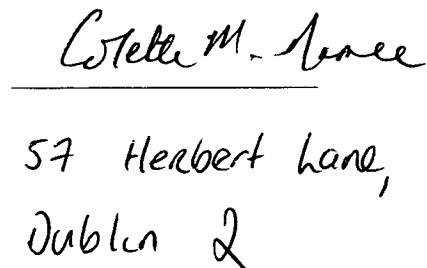 Colette M.
57 Herbert Lane,
Dublin 2